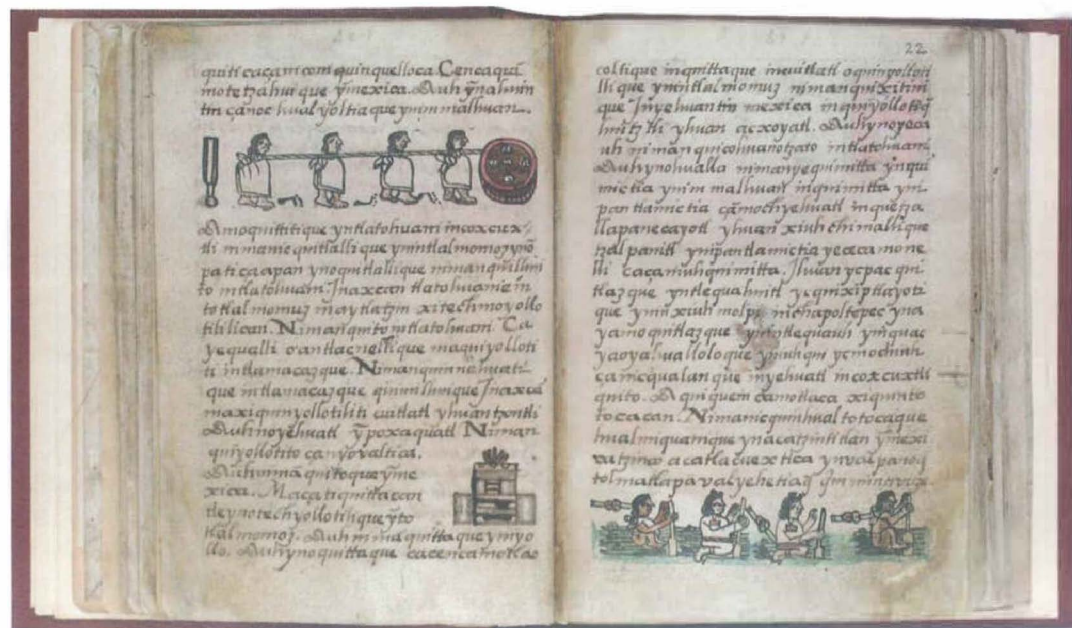 quiti caçan com quinquelloca Cencaqui
motetzahui que ỹmexica. Auh ỹnahuin
tin çanoc hual yoltiaque ynim malhuan.
Amoquittitique yntlatohuani incoxcux
tli nimanic quitlallique ymintlalmomoz
patiçacapan ynoquitlallique niman quilhui
to intlatohuani. Inaxcan tlatohuanie in
totlalmomuz ma ytlatzin xitechmoyollo
tibilican. Niman quito intlatohuani Ca
yequalli oantlacnellique maquiyolloti
ti intlamacazque. Niman quinnahuati
que intlamacazque quimilhuique Inaxca
maxiquinyollotiliti cuitlatl yhuan tzontli
Auh noyehuatl ỹ poxaquatl Niman
quiyollotito çan yovaltica.
Auh nimã quitoque ỹme
xica. Maca tiquittacan
tleynotechyollotilique ỹto
tlalmomoz. Auh nimã quittaque ymyo
llo. Auh ynoquittaque cacenca motlao
22
coltique inquittaque incuitlatl oquinyolloti
llique ymintlalmomuz niman quixitini
que Inyehuantin mexica inquiyollotique
huitztli yhuan acxoyatl. Auh ynoyeca
uh niman quicohuanotzato intlatohuani
Auh ynohualla nimanye quimitta ynqui
mictia ynim malhuan inquimitta yni
pantlamictia çãmochyehuatl inquetza
llapanecayotl yhuan xiuhchimalli que
tzalpanitl ynipantlamictia yececa mone
lli caçamuhqui mitta. Ihuan ycpac qui
tlazque yntlequahuitl ycquixiptlayoti
que ymin xiuhmolpi inchapoltepec yna
yamo quitlazque ymintlequauh ynquac
yaoyahuallolo que ynuhqui ycmochiuh
çanicqualanque inyehuatl incoxcuxtli
quito. Aquiquem camotlaca xiquinto
tocacan. Nimanic quinhualtotocaque
hualmiquanique ynacatzintitlan ỹmexi
catzinco acatla cuextlica ynvalpanoq
tolmatlapa valyehetiaq